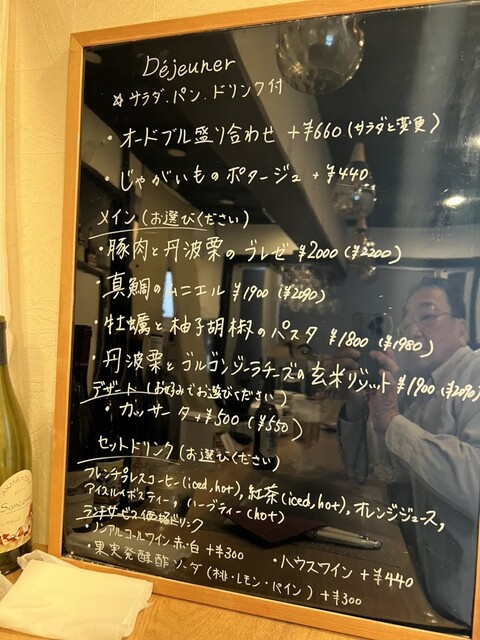 Déjeuner
☆サラダ.パン.ドリンク付
・オードブル盛り合わせ +¥660(サラダと変更)
・じゃがいものポタージュ +¥440
メイン(お選びください)
・豚肉と丹波栗のブレゼ ¥2000(¥2200)
・真鯛のムニエル ¥1900(¥2090)
・牡蠣と柚子胡椒のパスタ ¥1800(¥1980)
・丹波栗とゴルゴンゾーラチーズの玄米リゾット ¥1900(¥2090)
デザート(お好みでお選びください)
・カッサータ +¥500(¥550)
セットドリンク(お選びください)
フレンチプレスコーヒー(iced,hot),紅茶(iced,hot),オレンジジュース,
アイスルイボスティー,ハーブティー(hot)
ランチサービス価格ドリンク
・ノンアルコールワイン 赤・白 +¥300
・ハウスワイン +¥440
・果実発酵酢ソーダ(桃・レモン・パイン) +¥300